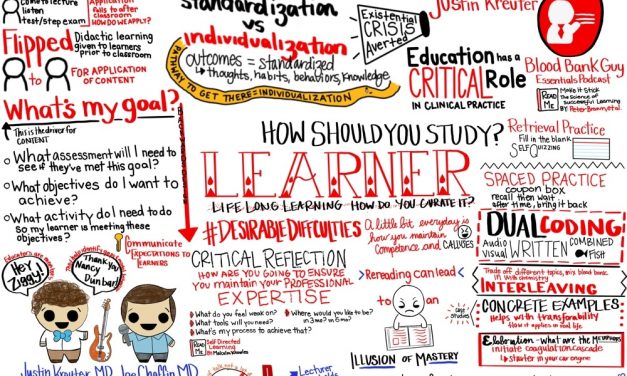 listen
test/step exam
classroom
HOW DO WE APPLY?
Flipped
Didactic learning
given to learners
prior to classroom
FOR APPLICATION
OF CONTENT
standardization
vs
individualization
outcomes = standardized
thoughts, habits, behaviors, knowledge
PATHWAY TO GET THERE = INDIVIDUALIZATION
Existential
CRISIS
Averted
Education has a
CRITICAL Role
IN CLINICAL PRACTICE
Justin Kreuter
Blood Bank Guy
Essentials Podcast
READ
ME
Make it Stick
The Science of
Successful Learning
BY: Peter Brown, et al
What's my goal?
This is the driver for
CONTENT
What assessment will I need to
see if they've met this goal?
What objectives do I want to
achieve?
What activity do I need to do
so my learner is meeting these
objectives?
Communicate
EXPECTATIONS
TO LEARNERS
HOW SHOULD YOU STUDY?
LEARNER
LIFE LONG LEARNING HOW DO YOU CURATE IT?
#DESIRABLE DIFFICULTIES
A little bit everyday is
how you maintain
Competence and CALLUSES
CRITICAL REFLECTION
HOW ARE YOU GOING TO ENSURE
YOU MAINTAIN YOUR PROFESSIONAL
EXPERTISE
What do you feel weak on?
Where would you like to be?
in 3 mo? in 6 mo?
What tools will you need?
What's my process to achieve that?
READ
ME
Self Directed
Learning
BY: Malcolm Knowles
Rereading can lead
to
an
ILLUSION OF MASTERY
case studies
Retrieval Practice
Fill in the blank
SELF QUIZZING
SPACED PRACTICE
coupon box
recall then wait
after time, bring it back
DUAL CODING
Audio
Visual
WRITTEN
COMBINED
FISH
Trade off different topics, mix blood bank
in with chemistry
INTERLEAVING
CONCRETE EXAMPLES
Helps with transferability
how it applies in real life
Elaboration - what are the
initiate coagulation cascade
starter in your car engine
HEY
ZIGGY!
Thank you
Nancy
Dunbar!
Justin Kreuter, MD
Joe Chaffin, MD
Lecturer